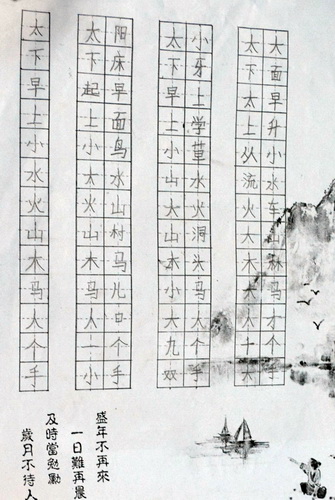 大面早升小水车山森马才个手
太下太上从流火大木大人十大
小牙上学草水火洞头马人个手
太下早上小山大山本小大九双
阳床早面鸟水山村马儿口个手
太下起上小太火山木马人一小
太下早上小水火山木马人个手
盛年不再來
一日難再晨
及時當勉勵
歲月不待人